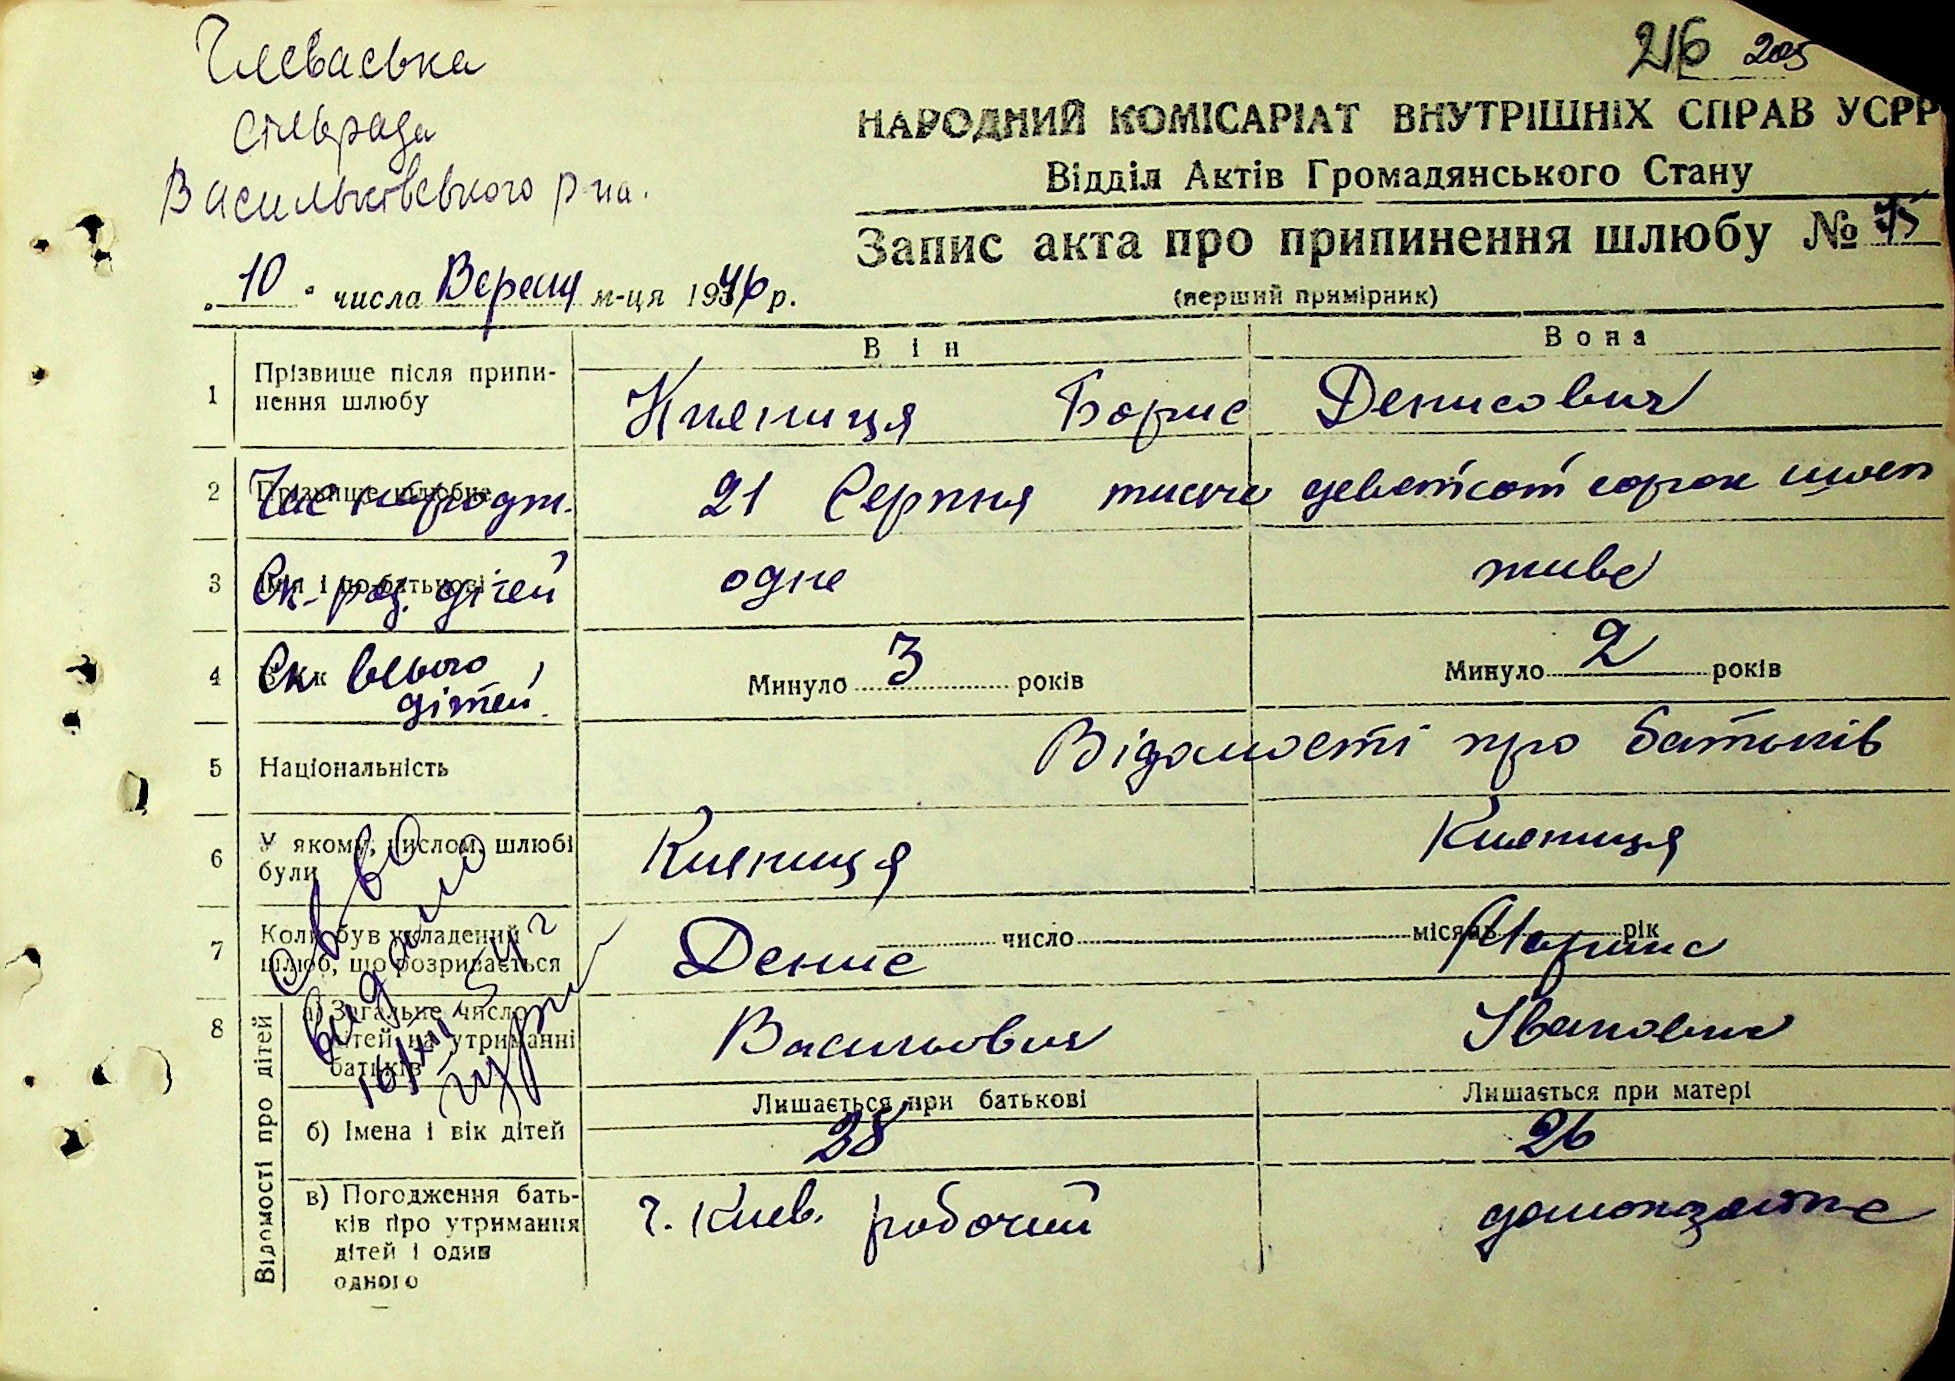 216 205
Глеваська
сільрада
Васильківського р-на.
НАРОДНИЙ КОМІСАРІАТ ВНУТРІШНІХ СПРАВ УСРР
Відділ Актів Громадянського Стану
Запис акта про припинення шлюбу №
(перший примірник)
„ 10 " числа Вересня м-ця 1946 р.
Він Вона
1 Прізвище після припи-
нення шлюбу
Княниця Борис Денисович
2 Прізвище шлюбне
Час народж. 21 Серпня тисяча девятсот сорок шост
3 Ім'я і по-батькові
Ск. род. дітей одне живе
4 Вік
Ск всього
дітей
Минуло 3 років Минуло 2 років
5 Національність Відомості про батьків
6 У якому, числом, шлюбі
були
Княниця Княниця
7 Коли був укладений
шлюб, що розривається
число місяць рік
Денис Марина
8 Відомості про дітей
а) Загальне число
дітей на утриманні
батьків
Васильович Івановна
Св-во
видано
16/XII 54 г
б) Імена і вік дітей
Лишається при батькові Лишається при матері
28 26
в) Погодження бать-
ків про утримання
дітей і один
одного
г. Киев. робочий домохазяйка